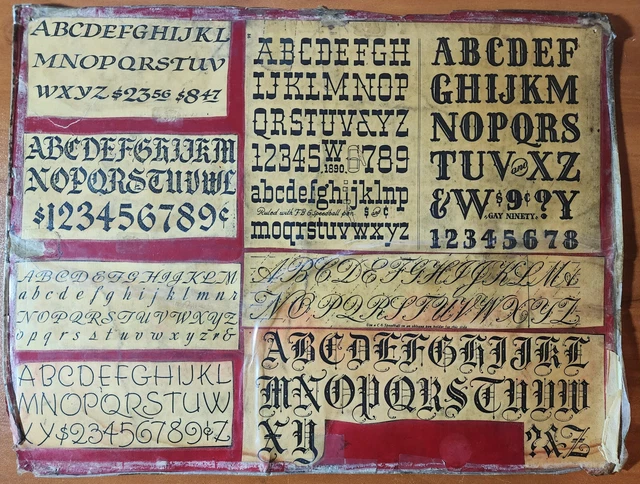 ABCDEFGHIJKL
MNOPQRSTUV
WXYZ $23 56 $8 47
ABCDEFGHIJKM
NOPQRSTUVWL
$123456789¢
ABCDEFGHIJKLM
abcdefghijklmnr
NOPQRSTUVWXYZ
opqrsstuvwxyz&
ABCDEFGHIJKL
MNOPQRSTUVW
XY$23456789¢Z
ABCDEFGH
IJKLMNOP
QRSTUV&XYZ
12345W6789
.1890.
abcdefghijklnp
Ruled with FB 6 Speedball pen $ and ¢
moqrstuvwxyz
ABCDEF
GHIJKM
NOPQRS
TUV and XZ
&W$9¢?Y
.GAY NINETY.
12345678
ABCDEFGHIJKLM&
NOPQRSTUVWXYZ
ABCDEFGHIJKL
MNOPQRSTUVW
XY ?&Z